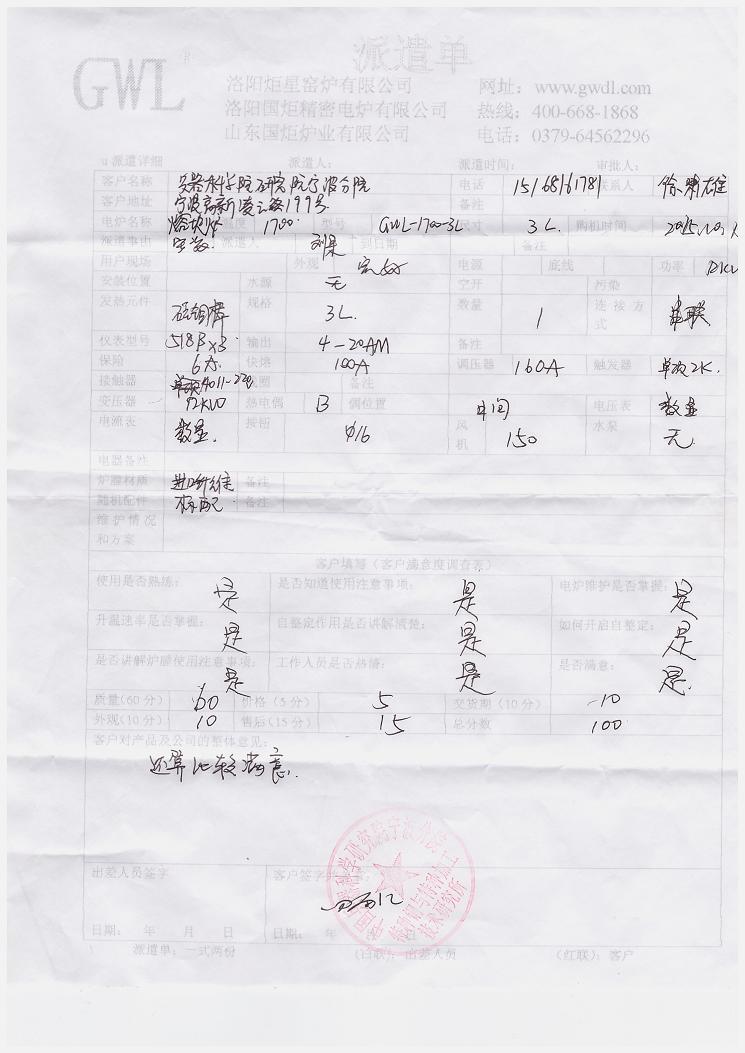 派遣单
GWL R
洛阳炬星窑炉有限公司 网址：www.gwdl.com
洛阳国炬精密电炉有限公司 热线：400-668-1868
山东国炬炉业有限公司 电话：0379-64562296
u派遣详细 派遣人： 派遣时间： 审批人：
客户名称 兵器科学院研究院宁波分院 电话 15168161781 联系人
客户地址 宁波高新凌云路199号 备注
电炉名称 温度 1700 型号 GWL-1700-3L 尺寸 3L 购机时间
派遣事由 派遣人 到日期 备注
用户现场 外观 完好 电源 底线 功率
安装位置 水源 无 空开 污染
发热元件 硅钼棒 规格 3L. 数量 1 连接方式 串联
仪表型号 518P×3 输出 4-20AM 备注
保险 6A. 快熔 100A 调压器 160A 触发器 单项2K.
接触器 备注
变压器 热电偶 B 偶位置 中间 电压表 数显
电流表 数显. 按钮 φ16 风机 150 水泵 无.
电器备注
炉膛材质 进口纤维 备注
随机配件 标配 备注
维护情况和方案
客户填写（客户满意度调查表）
使用是否熟练： 是 是否知道使用注意事项： 是 电炉维护是否掌握： 是
升温速率是否掌握： 是 自整定作用是否讲解清楚： 是 如何开启自整定： 是
是否讲解炉膛使用注意事项： 是 工作人员是否热情： 是 是否满意： 是.
质量(60分) 60 价格（5分） 5 交货期（10分） 10
外观(10分) 10 售后(15分) 15 总分数 100
客户对产品及公司的整体意见：
还算比较满意.
出差人员签字 客户签字
日期： 年 月 日 日期： 年 月 日
派遣单：一式两份 (白联)：出差人员 (红联)：客户